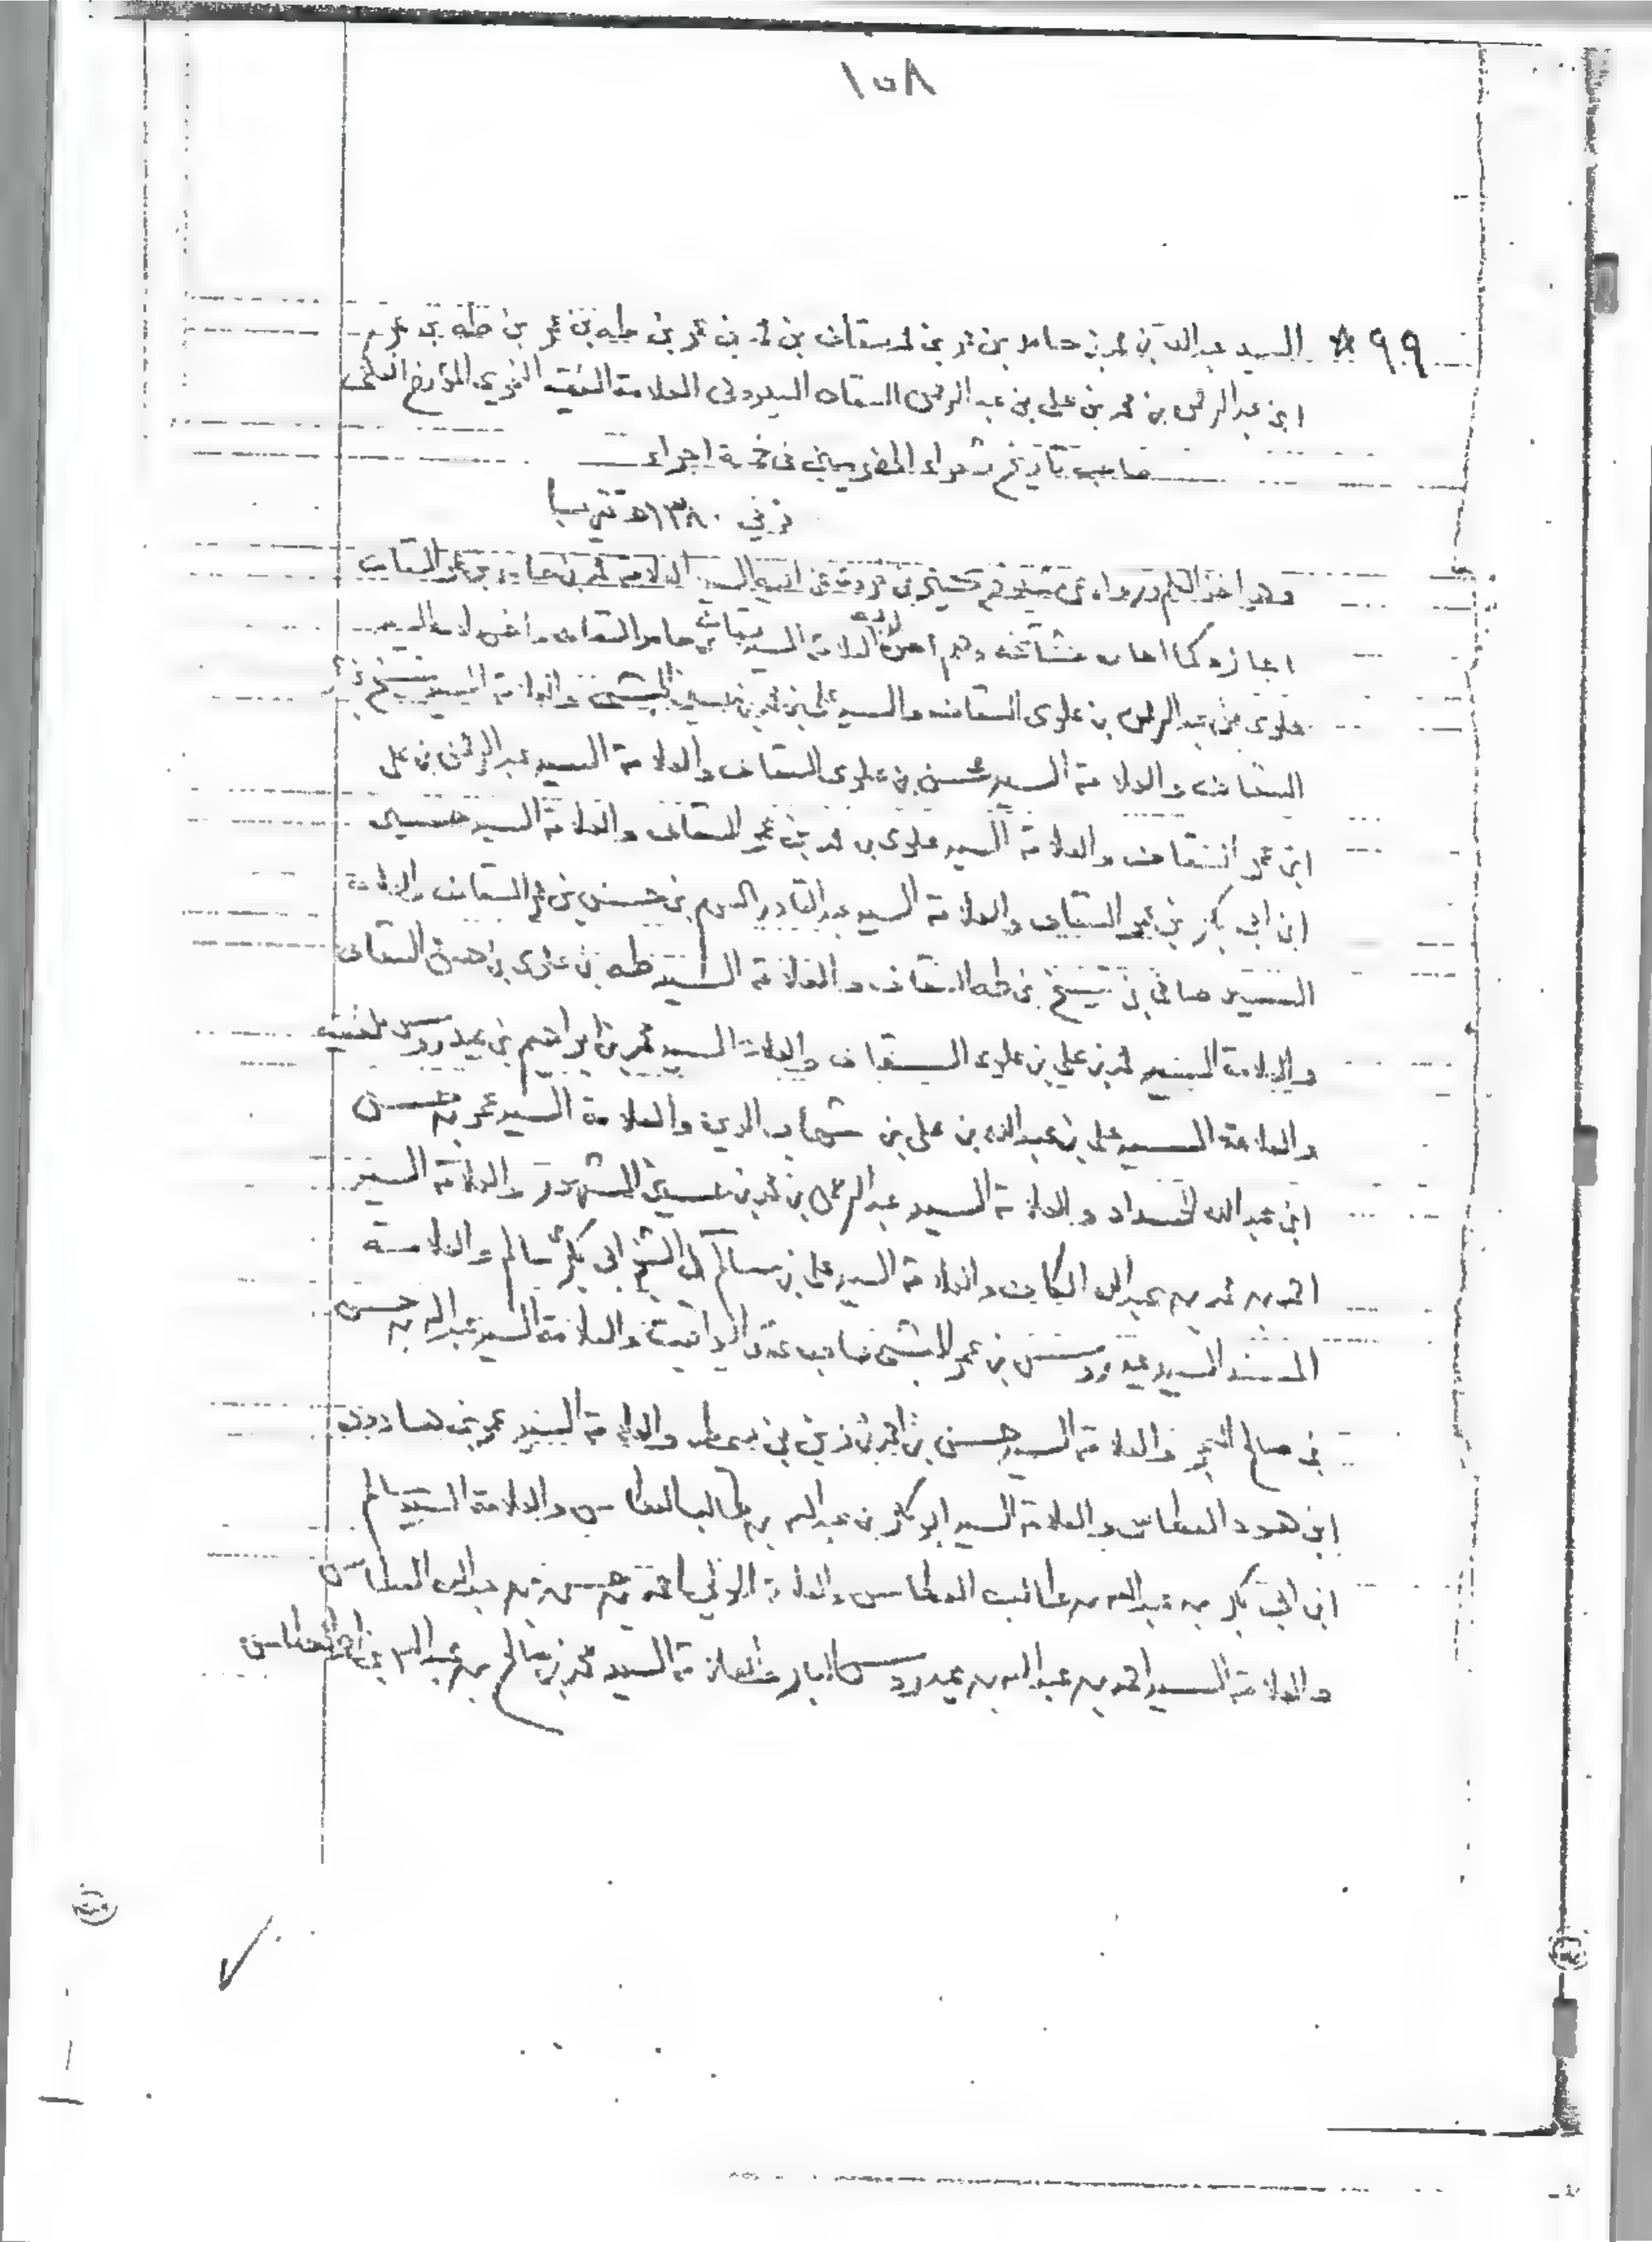 ١٥٨
٩٩ * السيد عبد الله بن محمد بن حامد بن عمر بن محمد سقاف بن محمد بن عمر بن طه بن عمر بن طه بن عمر
ابن عبد الرحمن بن محمد بن علي بن عبد الرحمن السقاف السيووني العلامة الفقيه النحوي المؤرخ الفلكي
صاحب تاريخ شعراء الحضرميين في خمسة اجزاء
توفي ١٣٨٠هـ تقريبا
وهو اخذ العلم ورواه عن شيوخ كثيرين فروى عن ابيه السيد العلامة محمد بن حامد بن عمر السقاف
اجازه كما اجازه مشائخه وهم العلامة السيد سقاف بن حامد السقاف السيد
علوي بن عبد الرحمن بن علوي السقاف والسيد علي بن محمد بن حسين الحبشي والعلامة السيد شيخ بن
السقاف والعلامة السيد محسن بن علوي السقاف والعلامة السيد عبد الرحمن بن علي
ابن عمر السقاف والعلامة السيد علوي بن محمد بن عمر السقاف والعلامة السيد حسين
ابن ابي بكر بن عمر السقاف والعلامة السيد عبد القادر بن حسن بن عمر السقاف والعلامة
السيد صافي بن شيخ بن طه السقاف والعلامة السيد طه بن علوي بن حسن السقاف
والعلامة السيد محمد بن علي بن علوي السقاف والعلامة السيد محمد بن ابراهيم بن عيدروس بلفقيه
والعلامة السيد علي بن عبد الله بن علي بن شهاب الدين والعلامة السيد عمر بن حسن
ابن عبد الله الحداد والعلامة السيد عبد الرحمن بن محمد بن حسين المشهور والعلامة السيد
احمد بن محمد بن عبد الله الكاف والعلامة السيد علي بن سالم آل الشيخ ابي بكر بن سالم والعلامة
المسند السيد عيدروس بن عمر الحبشي صاحب عقد اليواقيت والعلامة السيد عبد الله بن حسن
بن صالح البحر والعلامة السيد حسن بن احمد بن زين بن سميط والعلامة السيد عمر بن هادون
ابن هود العطاس والعلامة السيد ابو بكر بن عبد الله بن طالب العطاس والعلامة السيد سالم
ابن ابي بكر بن عبد الله بن طالب العطاس والعلامة الولي احمد بن حسن بن عبد الله العطاس
والعلامة السيد احمد بن عبد الله بن عيدروس البار والعلامة السيد محمد بن سالم بن عبد الله بن احمد العطاس